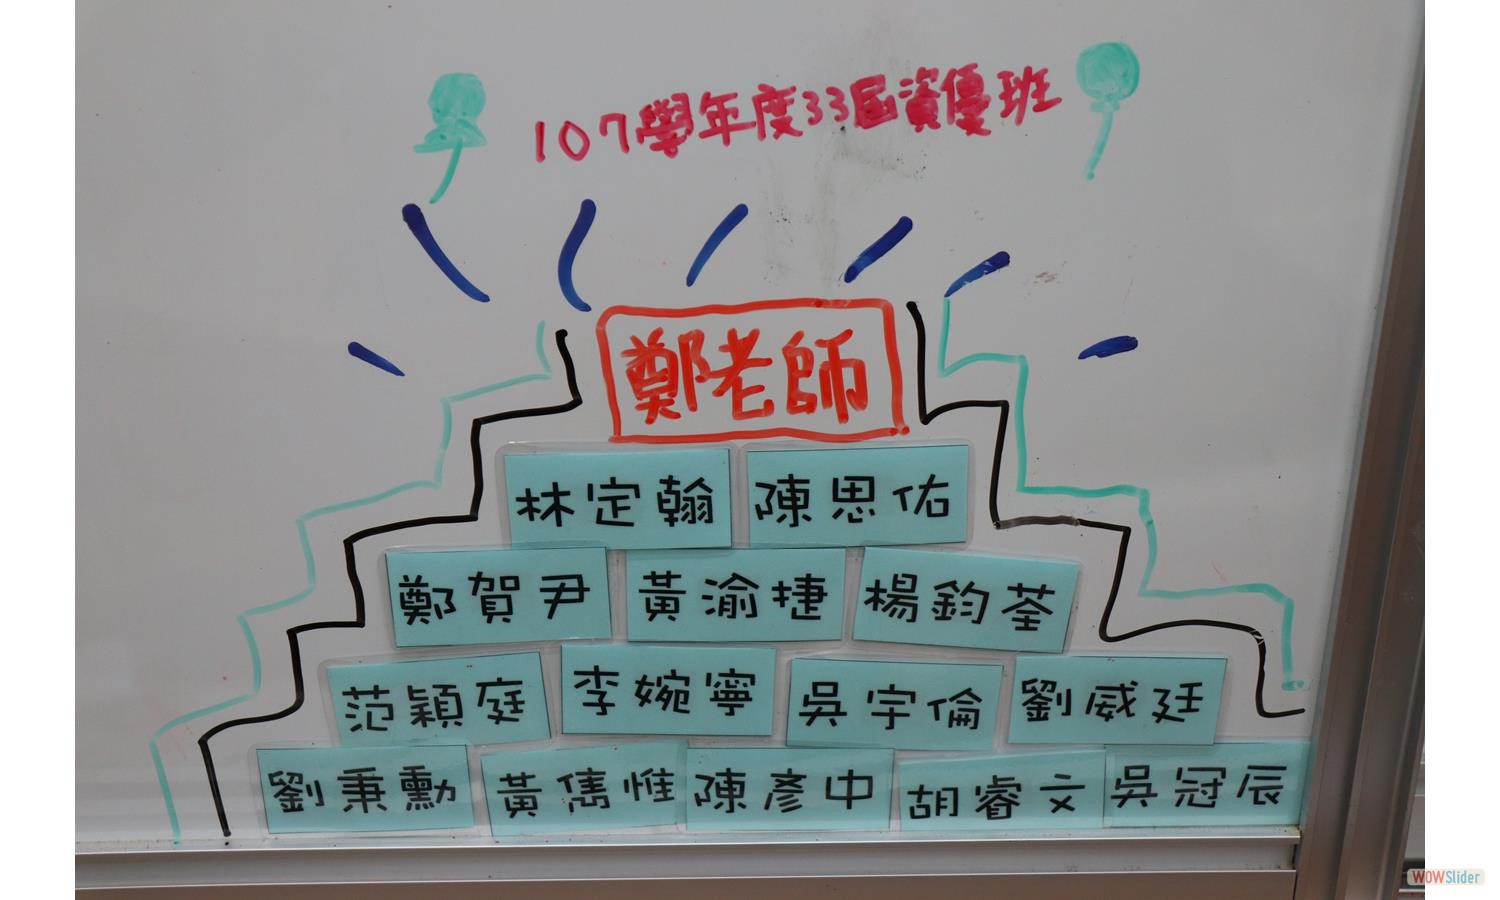 107學年度33屆資優班
鄭老師
林定翰 陳思佑
鄭賀尹 黃渝捷 楊鈞荃
范穎庭 李婉寧 吳宇倫 劉威廷
劉秉勳 黃雋惟 陳彥中 胡睿文 吳冠辰
WOWSlider